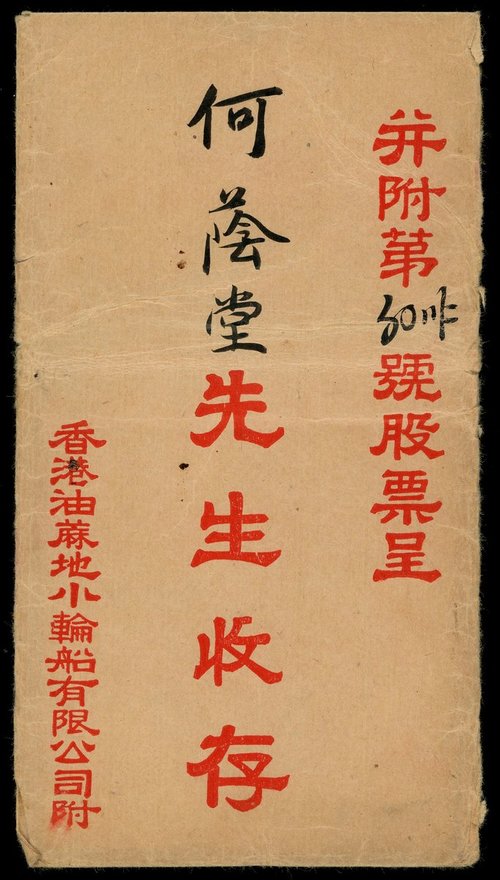 并附苐號股票呈
何蔭堂先生收存
香港油蔴地小輪船有限公司附